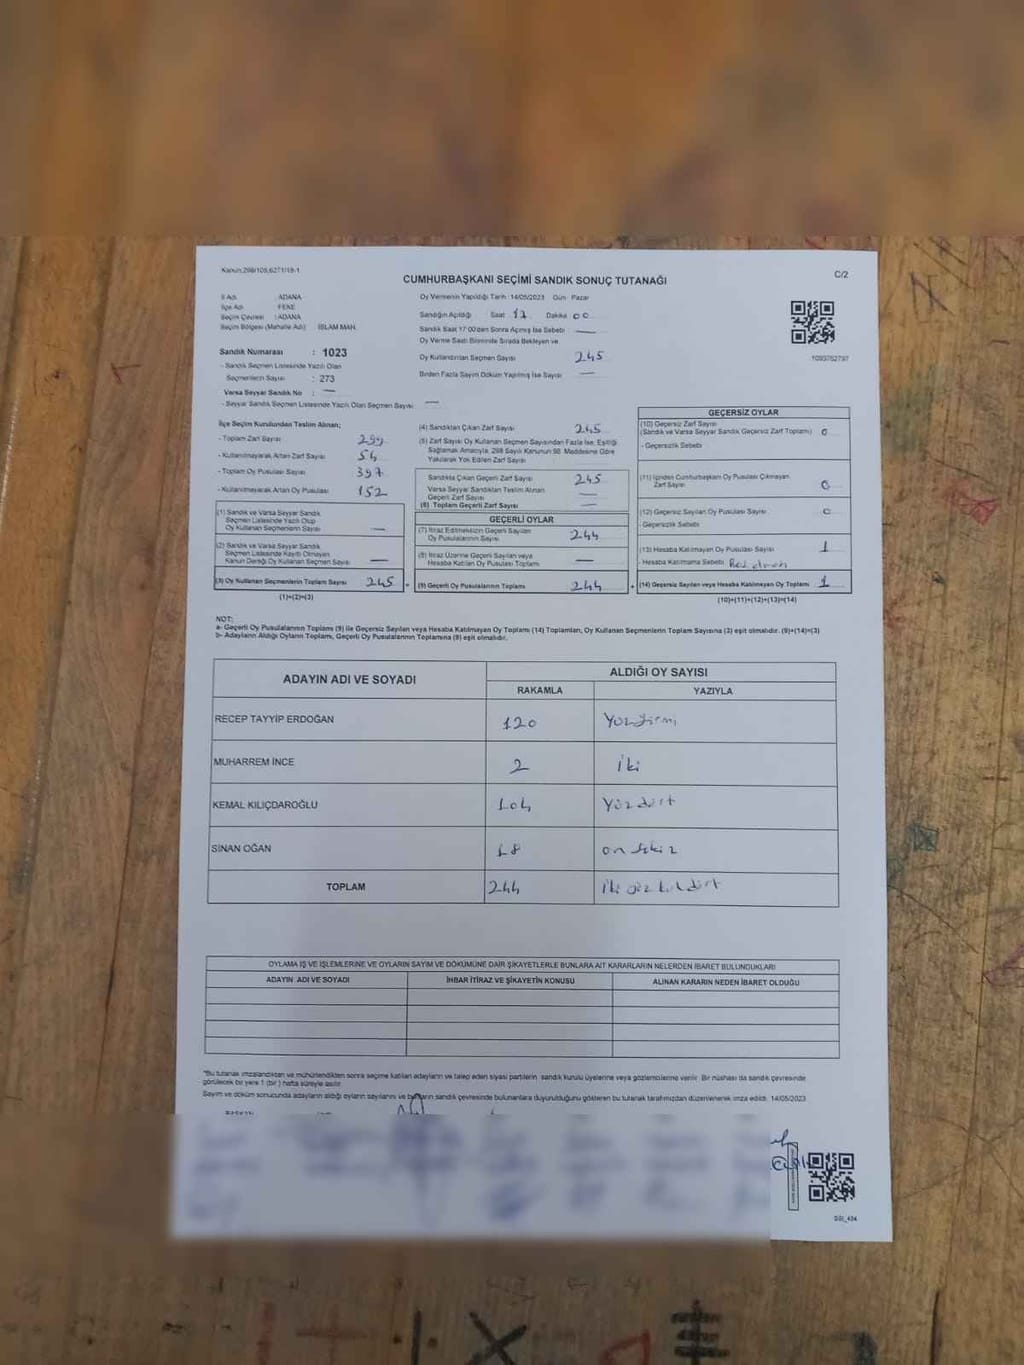 Kanun:298/105,6271/19-1
C/2
CUMHURBAŞKANI SEÇİMİ SANDIK SONUÇ TUTANAĞI
İl Adı : ADANA
İlçe Adı : FEKE
Seçim Çevresi : ADANA
Seçim Bölgesi (Mahalle Adı) İSLAM MAH.
Sandık Numarası : 1023
- Sandık Seçmen Listesinde Yazılı Olan
Seçmenlerin Sayısı : 273
Varsa Seyyar Sandık No : —
- Seyyar Sandık Seçmen Listesinde Yazılı Olan Seçmen Sayısı —
Oy Vermenin Yapıldığı Tarih :14/05/2023 Gün Pazar
Sandığın Açıldığı Saat 17 Dakika 00
Sandık Saat 17:00'den Sonra Açılmış İse Sebebi —
Oy Verme Saati Bitiminde Sırada Bekleyen ve
Oy Kullandırılan Seçmen Sayısı 245
Birden Fazla Sayım Döküm Yapılmış İse Sayısı —
1093762797
İlçe Seçim Kurulundan Teslim Alınan;
- Toplam Zarf Sayısı 299
- Kullanılmayarak Artan Zarf Sayısı 54
- Toplam Oy Pusulası Sayısı 397
- Kullanılmayarak Artan Oy Pusulası 152
(1) Sandık ve Varsa Seyyar Sandık
Seçmen Listesinde Yazılı Olup
Oy Kullanan Seçmenlerin Sayısı —
(2) Sandık ve Varsa Seyyar Sandık
Seçmen Listesinde Kayıtlı Olmayan
Kanun Gereği Oy Kullanan Seçmen Sayısı —
(3) Oy Kullanan Seçmenlerin Toplam Sayısı 245
(1)+(2)=(3)
(4) Sandıktan Çıkan Zarf Sayısı 245
(5) Zarf Sayısı Oy Kullanan Seçmen Sayısından Fazla İse; Eşitliği
Sağlamak Amacıyla, 298 Sayılı Kanunun 98. Maddesine Göre
Yakılarak Yok Edilen Zarf Sayısı
Sandıkta Çıkan Geçerli Zarf Sayısı 245
Varsa Seyyar Sandıktan Teslim Alınan
Geçerli Zarf Sayısı —
(6) Toplam Geçerli Zarf Sayısı —
GEÇERLİ OYLAR
(7) İtiraz Edilmeksizin Geçerli Sayılan
Oy Pusulalarının Sayısı 244
(8) İtiraz Üzerine Geçerli Sayılan veya
Hesaba Katılan Oy Pusulası Toplamı —
= (9) Geçerli Oy Pusulalarının Toplamı 244
GEÇERSİZ OYLAR
(10) Geçersiz Zarf Sayısı
(Sandık ve Varsa Seyyar Sandık Geçersiz Zarf Toplamı) 0
- Geçersizlik Sebebi
(11) İçinden Cumhurbaşkanı Oy Pusulası Çıkmayan
Zarf Sayısı 0
(12) Geçersiz Sayılan Oy Pusulası Sayısı 0
- Geçersizlik Sebebi
(13) Hesaba Katılmayan Oy Pusulası Sayısı 1
- Hesaba Katılmama Sebebi
+ (14) Geçersiz Sayılan veya Hesaba Katılmayan Oy Toplamı 1
(10)+(11)+(12)+(13)=(14)
NOT:
a- Geçerli Oy Pusulalarının Toplamı (9) ile Geçersiz Sayılan veya Hesaba Katılmayan Oy Toplamı (14) Toplamları, Oy Kullanan Seçmenlerin Toplam Sayısına (3) eşit olmalıdır. (9)+(14)=(3)
b- Adayların Aldığı Oyların Toplamı, Geçerli Oy Pusulalarının Toplamına (9) eşit olmalıdır.
ADAYIN ADI VE SOYADI
ALDIĞI OY SAYISI
RAKAMLA YAZIYLA
RECEP TAYYİP ERDOĞAN 120 Yüzyirmi
MUHARREM İNCE 2 iki
KEMAL KILIÇDAROĞLU 104 Yüzdört
SİNAN OĞAN 18 on sekiz
TOPLAM 244 iki yüz kırkdört
OYLAMA İŞ VE İŞLEMLERİNE VE OYLARIN SAYIM VE DÖKÜMÜNE DAİR ŞİKAYETLERLE BUNLARA AİT KARARLARIN NELERDEN İBARET BULUNDUKLARI
ADAYIN ADI VE SOYADI İHBAR İTİRAZ VE ŞİKAYETİN KONUSU ALINAN KARARIN NEDEN İBARET OLDUĞU
*Bu tutanak imzalandıktan ve mühürlendikten sonra seçime katılan adayların ve talep eden siyasi partilerin sandık kurulu üyelerine veya gözlemcilerine verilir. Bir nüshası da sandık çevresinde
görülecek bir yere 1 (bir) hafta süreyle asılır.
Sayım ve döküm sonucunda adayların aldığı oyların sayılarını ve bunların sandık çevresinde bulunanlara duyurulduğunu gösteren bu tutanak tarafımızdan düzenlenerek imza edildi. 14/05/2023
BAŞKAN